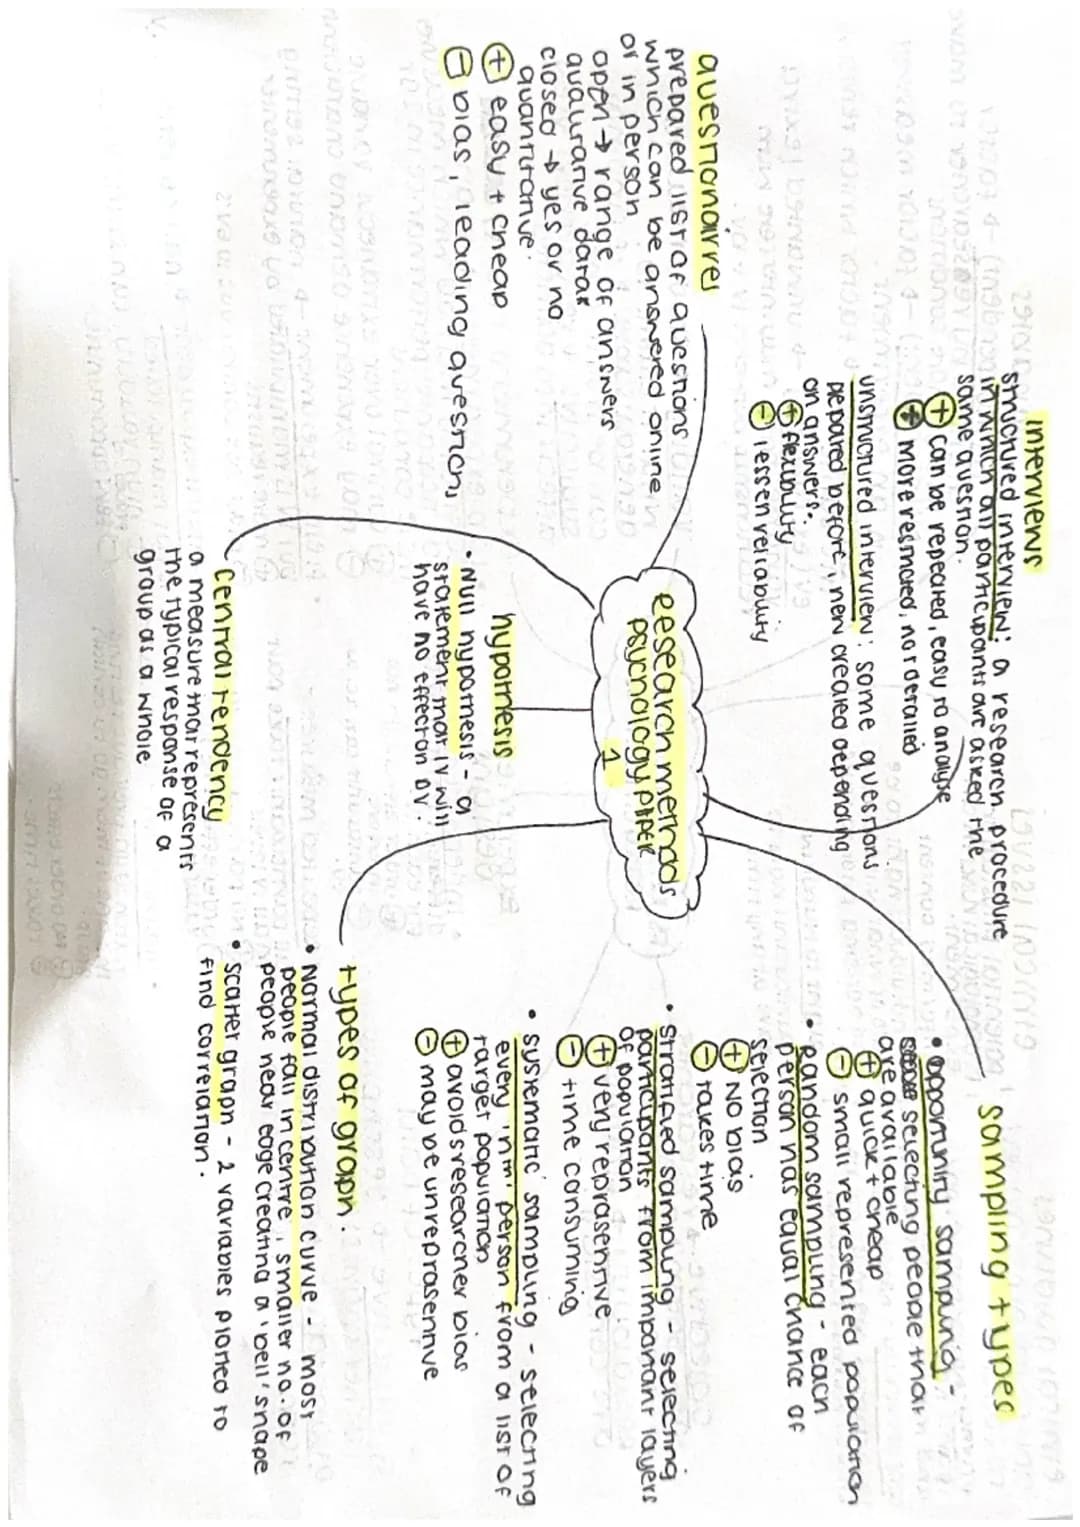 research methods
psychology paper
1
interviews
structured interview: a research procedure
in which all participants are asked the
same question.
+ can be repeated, easy to analyse
- more resmared, not detailed
unstructured interview: some questions
prepared before, new created depending
on answers.
+ flexibility
- lessen reliability
sampling types
• opportunity sampling -
selecting people that
are available
+ quick + cheap
- small represented population
• random sampling - each
person has equal chance of
selection
+ no bias
- takes time
• stratified sampling - selecting
participants from important layers
of population
+ very reprasentive
- time consuming
• systematic sampling - selecting
every 'nth' person from a list of
target population
+ avoids researcher bias
- may be unreprasentive
questionairre
prepared list of questions
which can be answered online
or in person
open → range of answers
qualitative data
closed → yes or no
quantitative.
+ easy + cheap
- bias, leading question,
hypothesis
• Null hypothesis - a
statement that IV will
have no effect on DV.
central tendency
a measure that represents
the typical response of a
group as a whole
types of graph.
• Normal distribution curve - most
people fall in centre, smaller no. of
people near edge creating a 'bell' shape
• scatter graph - 2 variables plotted to
find correlation.